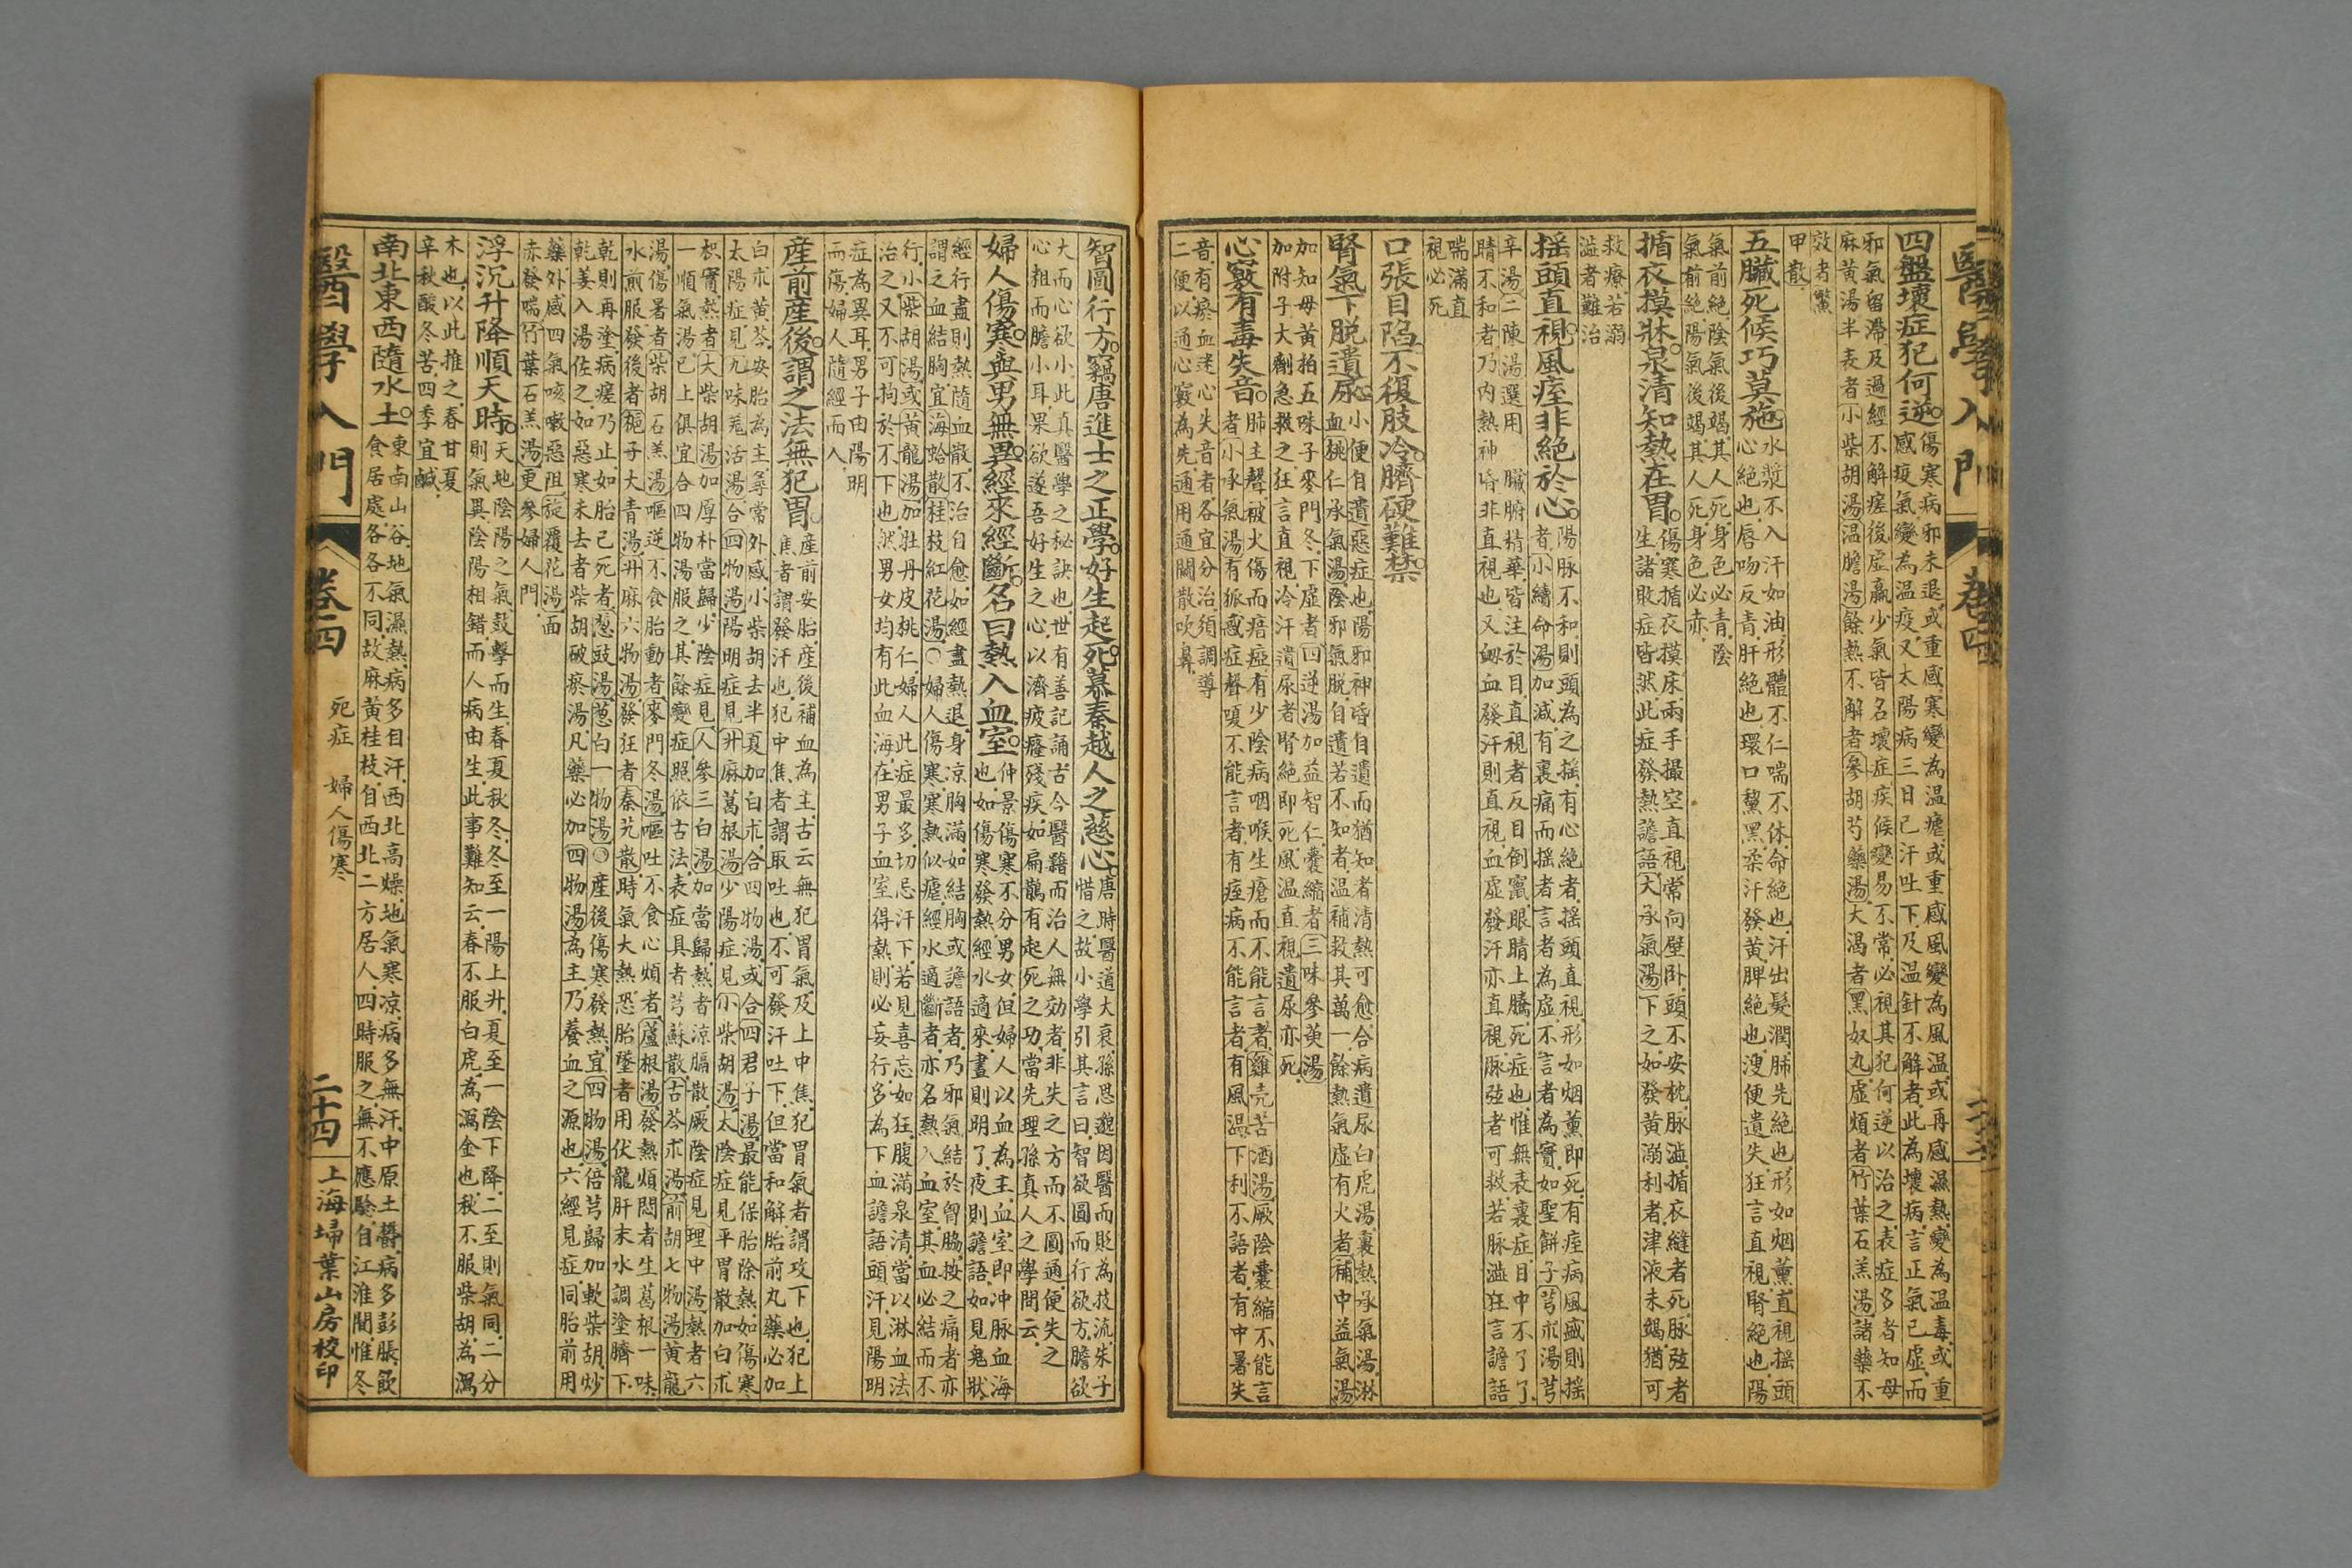 醫學入門 卷四
四盤壞症犯何逆
傷寒病邪未退或重感寒變為温瘧或重感風變為風温或再感濕熱變為温毒或重
感疫氣變為温疫又太陽病三日已汗吐下及温針不解者此為壞病言正氣已虛而
邪氣留滯及過經不解瘥後虛羸少氣皆名壞症疾候變易不常必視其犯何逆以治之表症多者知母
麻黃湯半表者小柴胡湯温膽湯餘熱不解者參胡芍藥湯大渴者黑奴丸虛煩者竹葉石羔湯諸藥不
效者鱉
甲散
五臟死候巧莫施
水漿不入汗如油形體不仁喘不休命絶也汗出髮潤肺先絶也形如烟薰直視搖頭
心絶也唇吻反青肝絶也環口黧黑柔汗發黃脾絶也溲便遺失狂言直視腎絶也陽
氣前絶陰氣後竭其人死身色必青陰
氣前絶陽氣後竭其人死身色必赤
揗衣摸牀泉清知熱在胃
傷寒揗衣摸床兩手撮空直視常向壁卧頭不安枕脉澁揗衣縫者死脉弦者
生諸敗症皆然此症發熱譫語大承氣湯下之如發黃溺利者津液未竭猶可
救療若溺
澁者難治
搖頭直視風痓非絶於心
陽脉不和則頭為之搖有心絶者搖頭直視形如烟薰即死有痓病風盛則搖
者小續命湯加減有裏痛而搖者言者為虛不言者為實如聖餅子芎朮湯芎
辛湯二陳湯選用　臟腑精華皆注於目直視者反目倒竄眼睛上騰死症也惟無表裏症目中不了了
睛不和者乃内熱神昏非直視也又衂血發汗則直視血虛發汗亦直視脉弦者可救若脉澁狂言譫語
喘滿直
視必死
口張目陷不復肢冷臍硬難禁
腎氣下脱遺尿
小便自遺惡症也陽邪神昏自遺而猶知者清熱可愈合病遺尿白虎湯裏熱承氣湯淋
血桃仁承氣湯陰邪氣脱自遺若不知者温補救其萬一餘熱氣虛有火者補中益氣湯
加知母黃拍五味子麥門冬下虛者四逆湯加益智仁囊縮者三味參萸湯
加附子大劑急救之狂言直視冷汗遺尿者腎絶即死風温直視遺尿亦死
心竅有毒失音
肺主聲被火傷而瘖瘂有少陰病咽喉生瘡而不能言者雞壳苦酒湯厥陰囊縮不能言
者小承氣湯有狐惑症聲嗄不能言者有痓病不能言者有風温下利不語者有中暑失
音有瘀血迷心失音者各宜分治須調導
二便以通心竅為先通用通關散吹鼻
智圖行方竊唐進士之正學好生起死慕秦越人之慈心
唐時醫道大衰孫思邈因醫而貶為技流朱子
惜之故小學引其言曰智欲圖而行欲方膽欲
大而心欲小此真醫學之秘訣也世有善記誦古今醫籍而治人無効者非失之方而不圓通便失之
心粗而膽小耳果欲遂吾好生之心以濟疲癃殘疾如扁鵲有起死之功當先理孫真人之學問云
婦人傷寒與男無異經來經斷名曰熱入血室
仲景傷寒不分男女但婦人以血為主血室即冲脉血海
也如傷寒發熱經水適來晝則明了夜則譫語如見鬼狀
經行盡則熱隨血散不治自愈如經盡熱退身凉胸滿如結胸或譫語者乃邪氣結於胷脇按之痛者亦
謂之血結胸宜海蛤散桂枝紅花湯○婦人傷寒寒熱似瘧經水適斷者亦名熱入血室其血必結而不
行小柴胡湯或黃龍湯加壯丹皮桃仁婦人此症最多切忌汗下若見喜忘如狂腹滿泉清當以淋血法
治之又不可拘於不下也然男女均有此血海在男子血室得熱則必妄行多為下血譫語頭汗見陽明
症為異耳男子由陽明
而傷婦人隨經而入
産前産後謂之法無犯胃
産前安胎産後補血為主古云無犯胃氣及上中焦犯胃氣者謂攻下也犯上
焦者謂發汗也犯中焦者謂取吐也不可發汗吐下但當和解胎前丸藥必加
白朮黃芩安胎為主尋常外感小柴胡去半夏加白朮合四物湯或合四君子湯最能保胎除熱如傷寒
太陽症見九味羗活湯合四物湯陽明症見升麻葛根湯少陽症見小柴胡湯太陰症見平胃散加白朮
枳實熱者大柴胡湯加厚朴當歸少陰症見人參三白湯加當歸熱者凉膈散厥陰症見理中湯熱者六
一順氣湯已上俱宜合四物湯服之其餘變症照依古法表症具者芎蘇散古芩朮湯前胡七物湯黃龍
湯傷暑者柴胡石羔湯嘔逆不食胎動者麥門冬湯嘔吐不食心煩者蘆根湯發熱煩悶者生葛根一味
水煎服發後者梔子大青湯升麻六物湯發狂者秦艽散時氣大熱恐胎墜者用伏龍肝末水調塗臍下
乾則再塗病瘥乃止如胎已死者葱豉湯葱白一物湯○産後傷寒發熱宜四物湯倍芎歸加軟柴胡炒
乾姜入湯佐之如惡寒未去者柴胡破瘀湯凡藥必加四物湯為主乃養血之源也六經見症同胎前用
藥外感四氣咳嗽惡阻旋覆花湯面
赤發喘竹葉石羔湯更參婦人門
浮沉升降順天時
天地陰陽之氣鼓擊而生春夏秋冬冬至一陽上升夏至一陰下降二至則氣同二分
則氣異陰陽相錯而人病由生此事難知云春不服白虎為瀉金也秋不服柴胡為瀉
木也以此推之春甘夏
辛秋酸冬苦四季宜鹹
南北東西隨水土
東南山谷地氣濕熱病多自汗西北高燥地氣寒凉病多無汗中原土欝病多彭脹飲
食居處各各不同故麻黃桂枝自西北二方居人四時服之無不應驗自江淮間惟冬
醫學入門 卷四 死症 婦人傷寒 二十四 上海埽葉山房校印